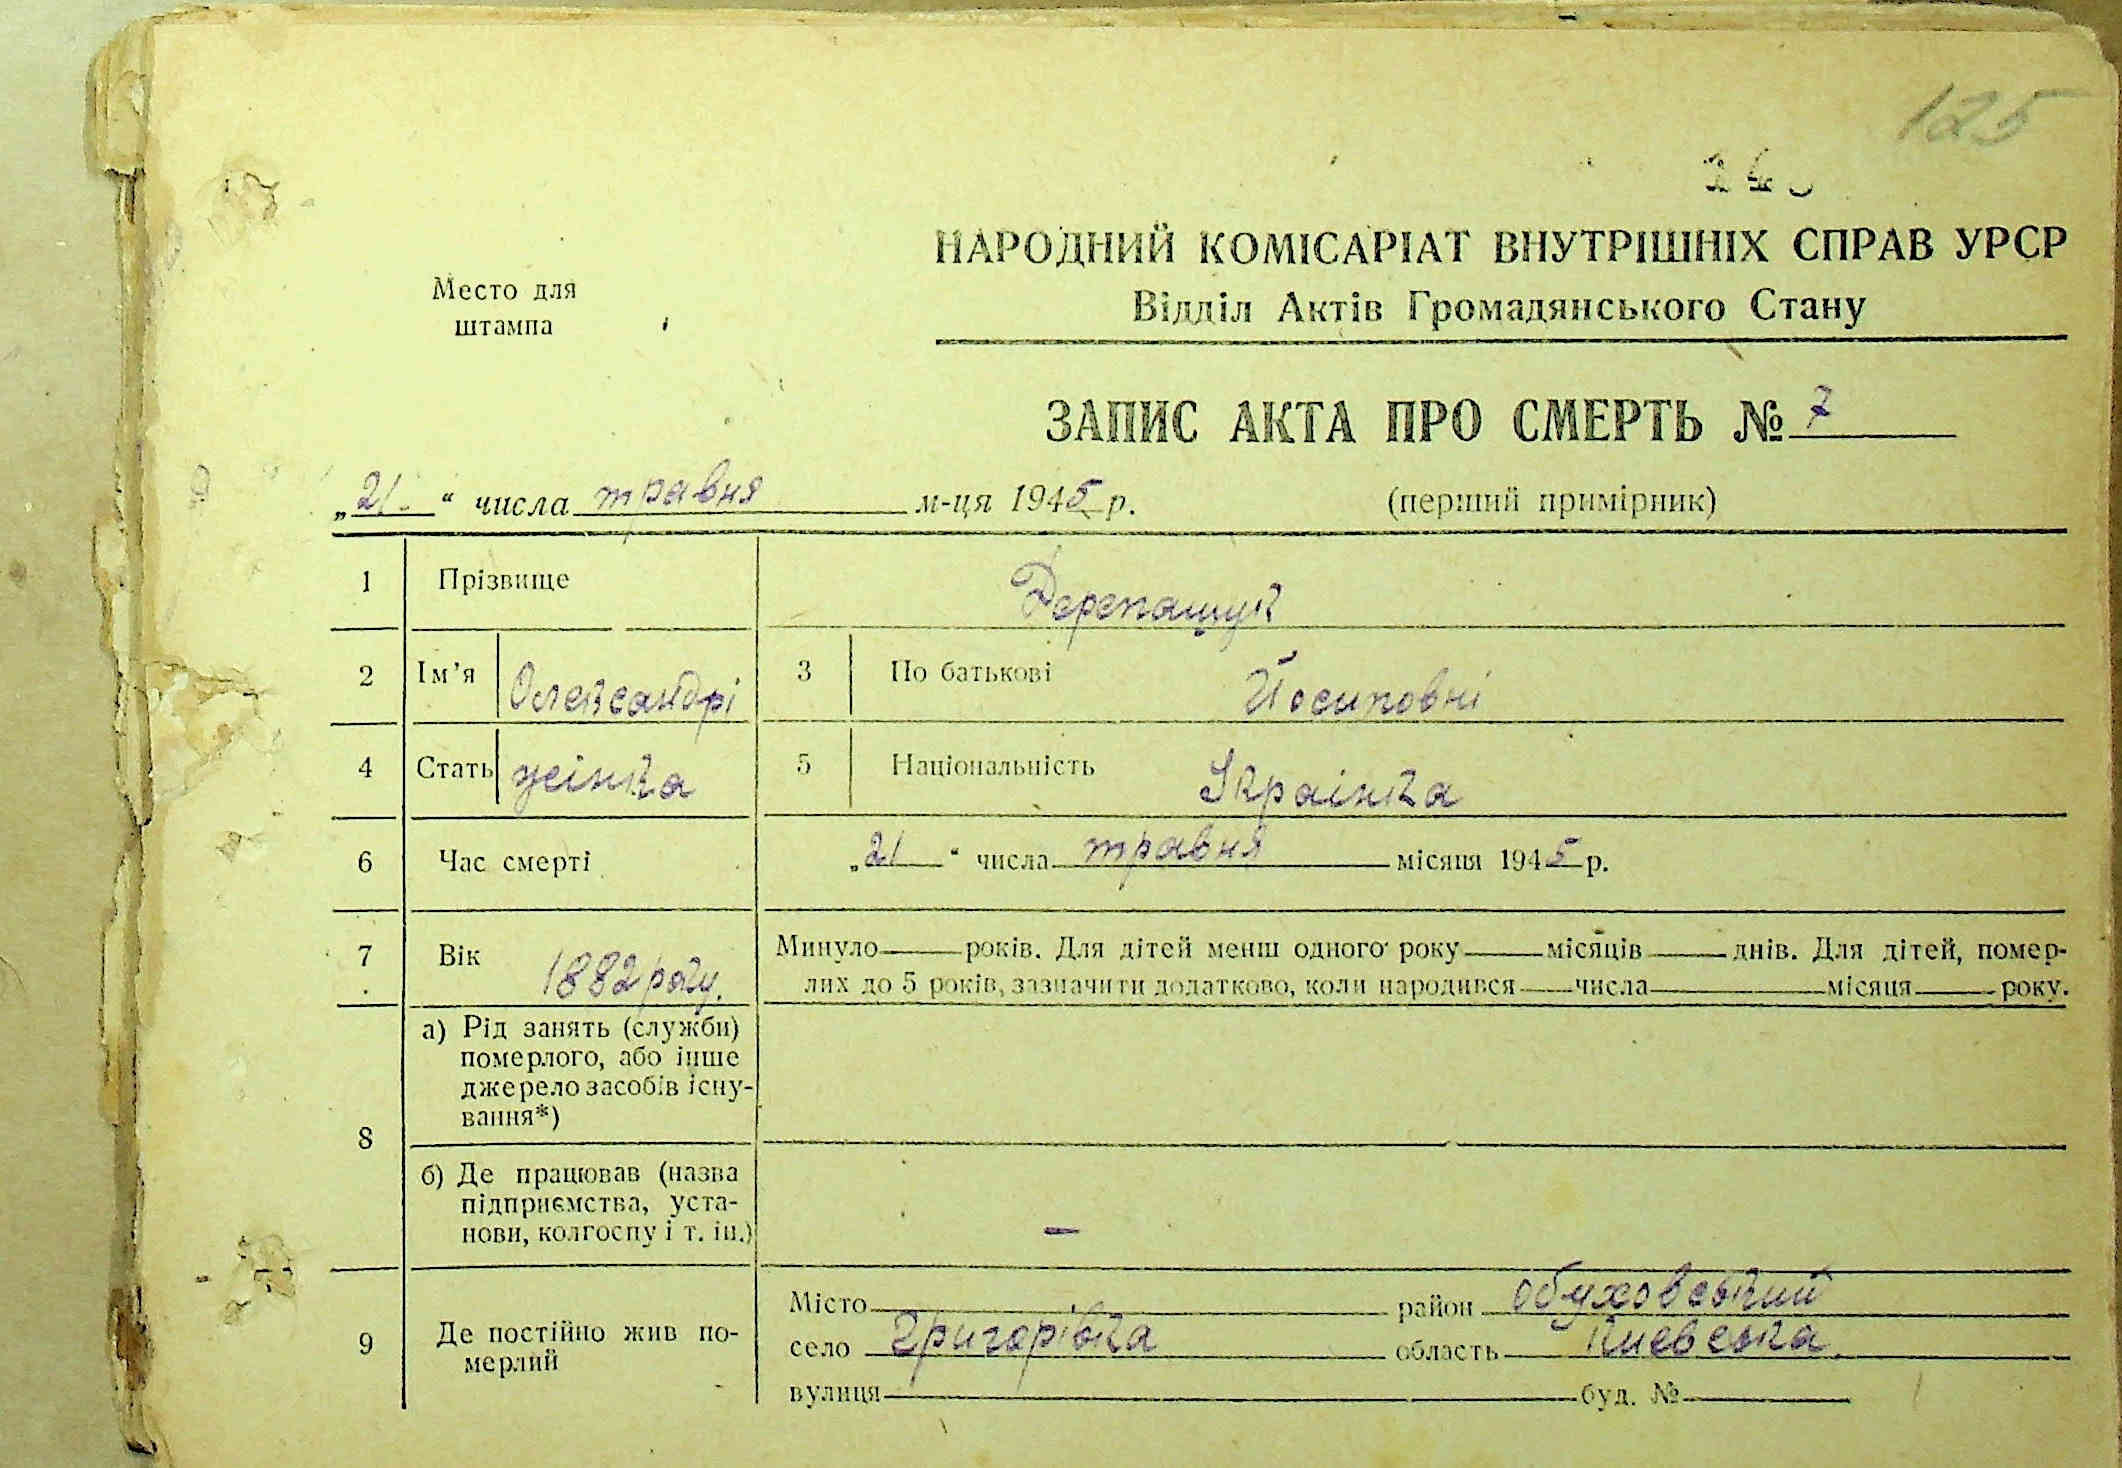 125
НАРОДНИЙ КОМІСАРІАТ ВНУТРІШНІХ СПРАВ УРСР
Место для штампа
Відділ Актів Громадянського Стану
ЗАПИС АКТА ПРО СМЕРТЬ № 7
„21“ числа травня м-ця 1945 р. (перший примірник)
1 Прізвище Дерепащук
2 Ім’я Олександрі 3 По батькові Йосиповні
4 Стать жінка 5 Національність Украінка
6 Час смерті „21“ числа травня місяця 1945 р.
7 Вік 1882 року. Минуло років. Для дітей менш одного року місяців днів. Для дітей, помер-
лих до 5 років, зазначити додатково, коли народився числа місяця року.
8 а) Рід занять (служби)
померлого, або інше
джерело засобів існу-
вання*)
б) Де працював (назва
підприємства, уста-
нови, колгоспу і т. ін.) —
9 Де постійно жив по-
мерлий
Місто район обуховський
село Григорівка область Киевська
вулиця буд. №